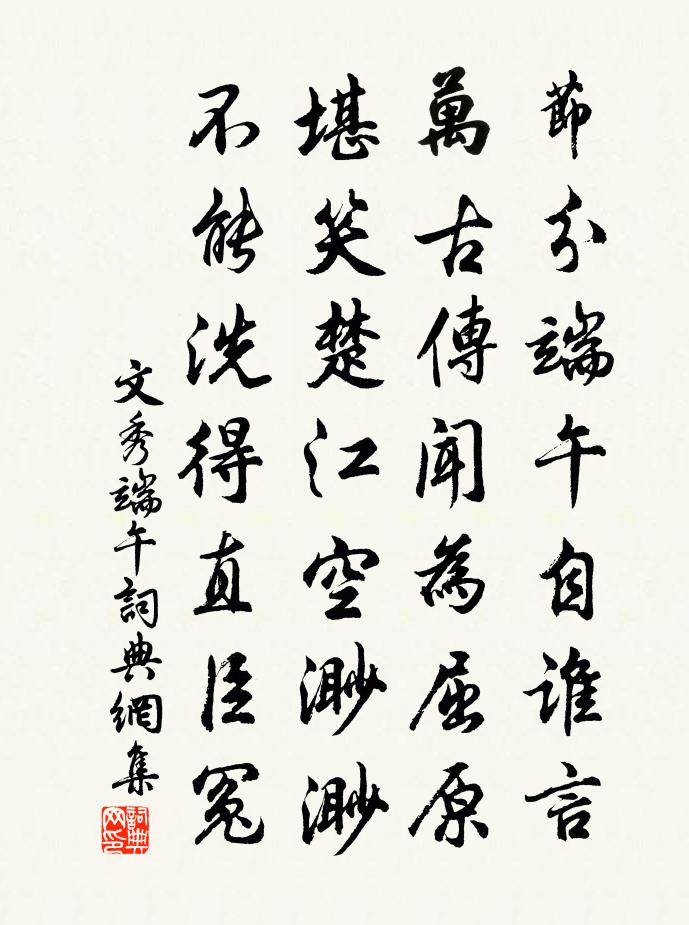 節分端午自誰言
萬古傳聞為屈原
堪笑楚江空渺渺
不能洗得直臣冤
文秀端午詞典網集
詞典網印